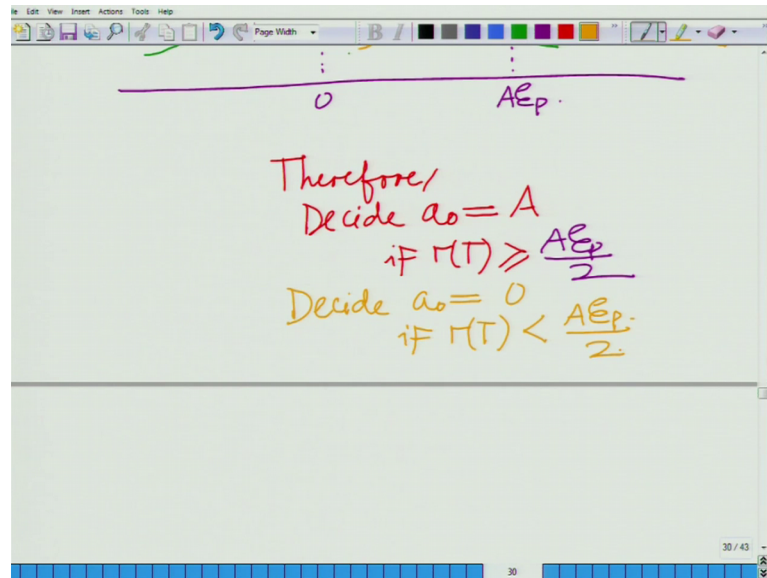 le Edit View Insert Actions Tools Help
Page Width
B I
0 Aℰp.
Therefore,
Decide a₀ = A
if r(T) ≥ Aℰp/2
Decide a₀ = 0
if r(T) < Aℰp./2.
30 / 43
30